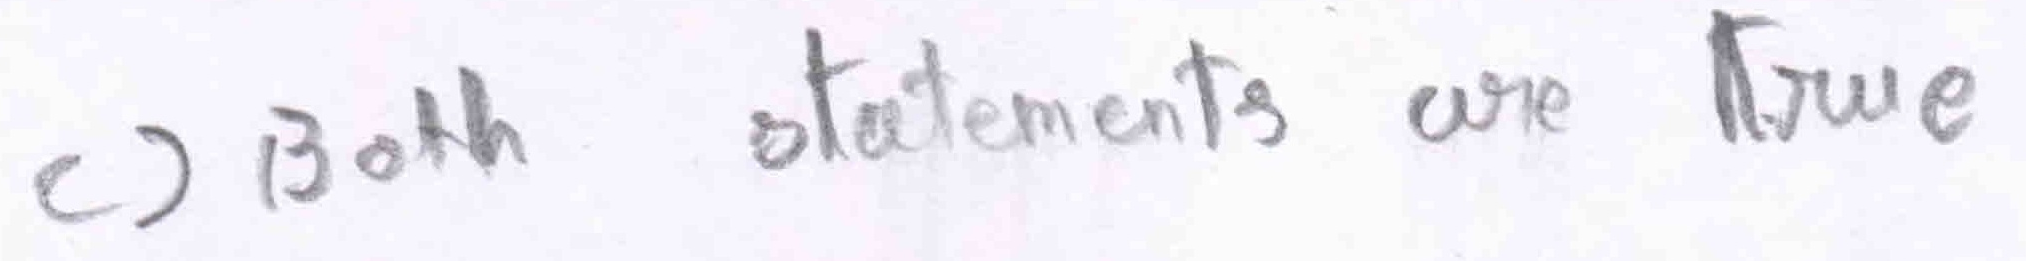 c) Both statements are true